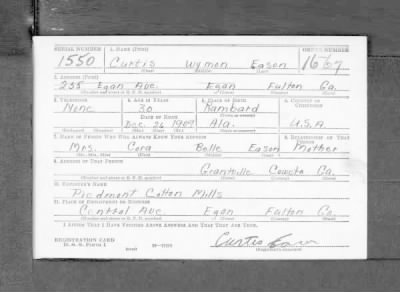 SERIAL NUMBER 1. NAME (Print) ORDER NUMBER
1550 Curtis Wymon Eason
(First) (Middle) (Last)
2. ADDRESS (Print)
235 Egan Ave. Egan Fulton Ga.
(Number and street or R. F. D. number) (Town) (County) (State)
3. TELEPHONE 4. AGE IN YEARS 5. PLACE OF BIRTH 6. COUNTRY OF CITIZENSHIP
None 30
DATE OF BIRTH
Dec. 26 1909 Ala. U.S.A
(Exchange) (Number) (Mo.) (Day) (Yr.) (State or country)
7. NAME OF PERSON WHO WILL ALWAYS KNOW YOUR ADDRESS 8. RELATIONSHIP OF THAT PERSON
Mrs. Cora Belle Eason Mother
(Mr., Mrs., Miss) (First) (Middle) (Last)
9. ADDRESS OF THAT PERSON
Grantville Coweta Ga.
(Number and street or R. F. D. number) (Town) (County) (State)
10. EMPLOYER'S NAME
Piedmont Cotton Mills
11. PLACE OF EMPLOYMENT OR BUSINESS
Central Ave Egan Fulton Ga
(Number and street or R. F. D. number) (Town) (County) (State)
I AFFIRM THAT I HAVE VERIFIED ABOVE ANSWERS AND THAT THEY ARE TRUE.
REGISTRATION CARD
D. S. S. FORM 1 (over)
Curtis Eason
(Registrant's signature)